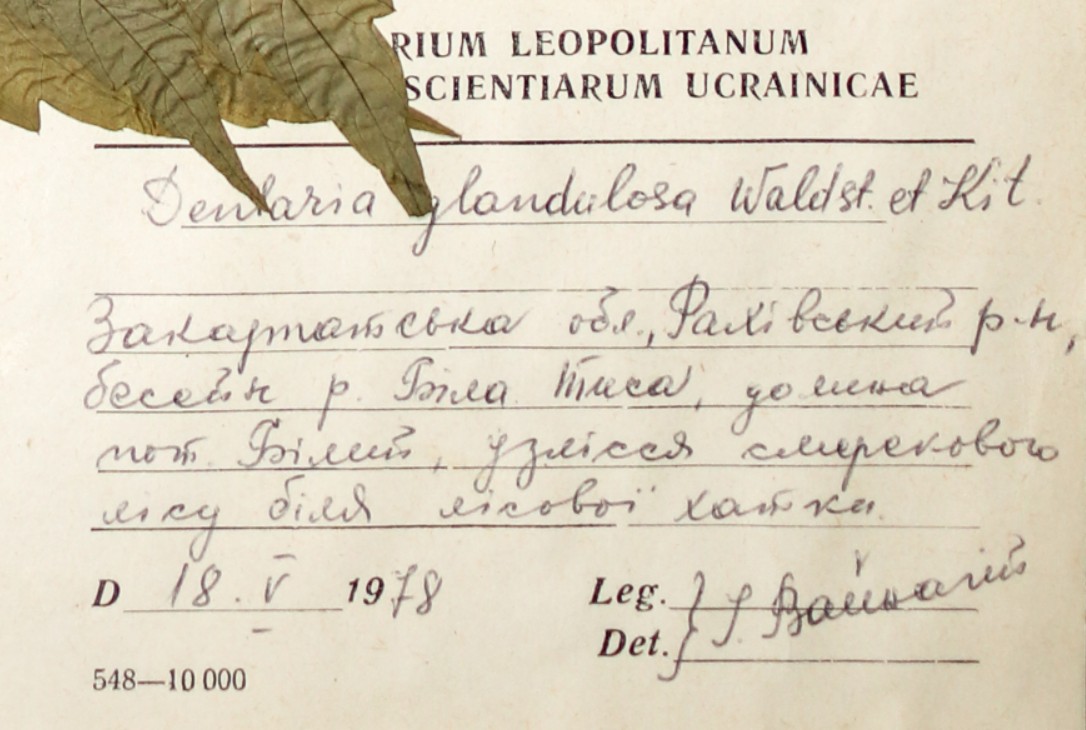 RIUM LEOPOLITANUM
SCIENTIARUM UCRAINICAE
Dentaria glandulosa Waldst. et Kit.
Закарпатська обл., Рахівський р-н,
бесейн р. Біла Тиса, долина
пот. Білий, узлісся смерекового
лісу біля лісової хатки.
D 18. V 1978 Leg.
Det.
548—10 000